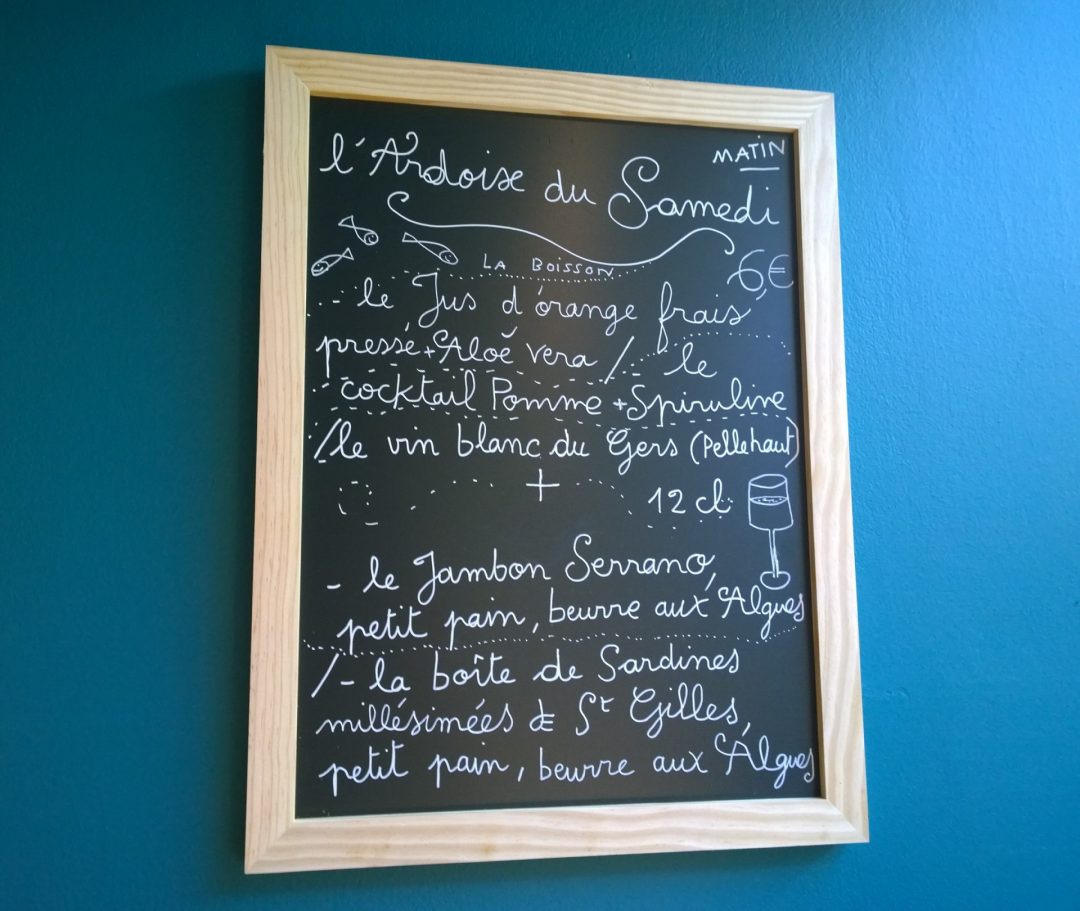 MATIN
l'Ardoise du Samedi
LA BOISSON
6€
- le Jus d'orange frais
pressé + Aloé vera / le
cocktail Pomme + Spiruline
/ le vin blanc du Gers (Pellehaut)
+
12 cl
- le Jambon Serrano,
petit pain, beurre aux Algues
/ - la boîte de Sardines
millésimées de St Gilles,
petit pain, beurre aux Algues